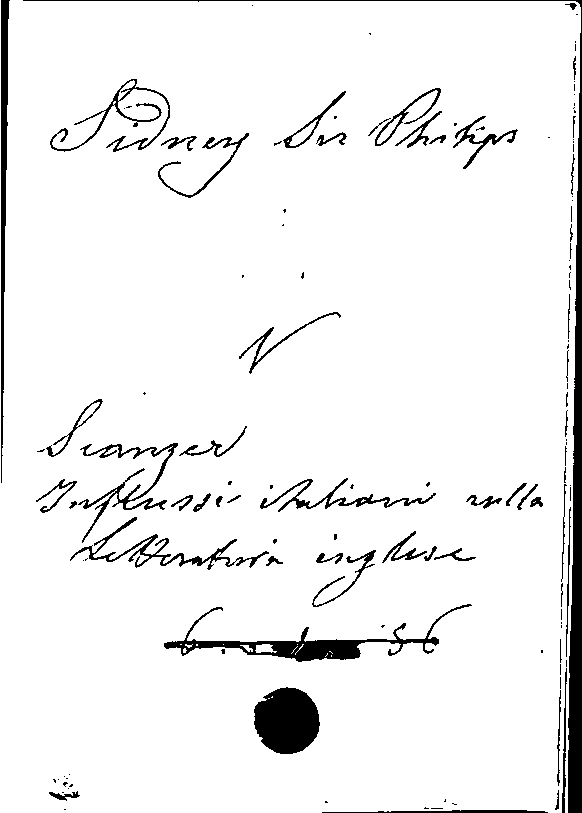 Sidney Sir Philips
V
Scanzer
Influssi italiani sulla
Letteratura inglese